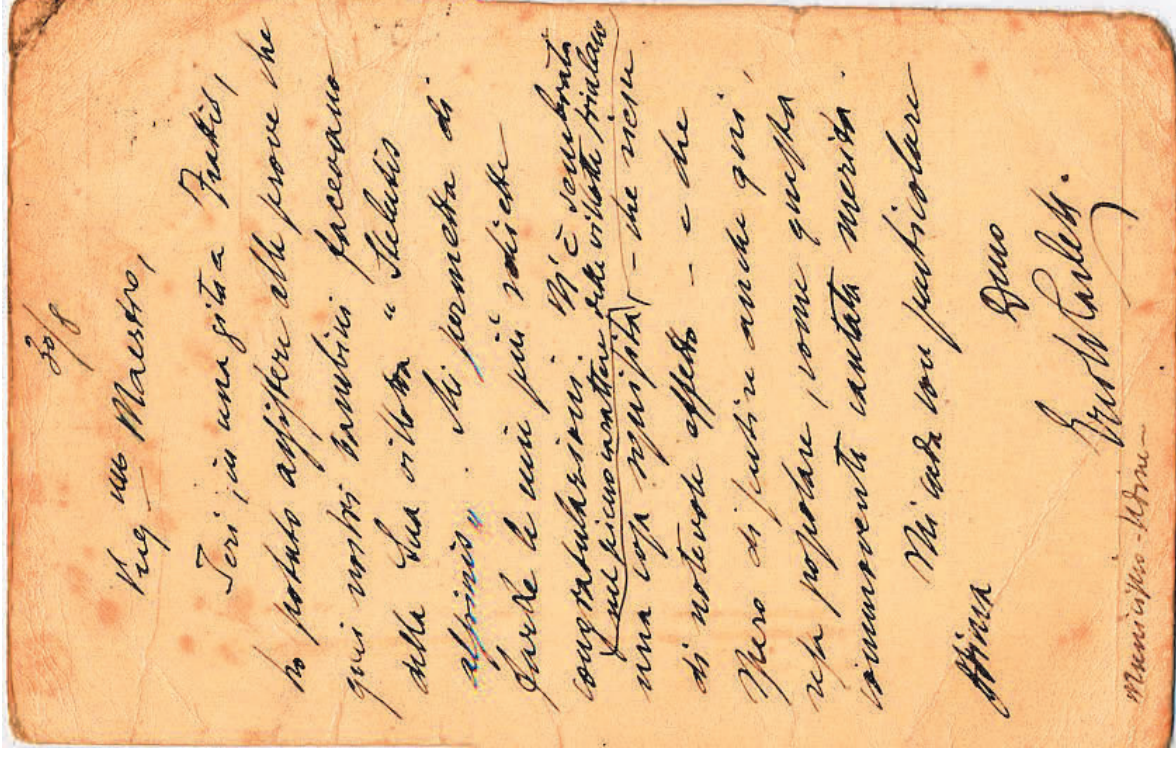 30/8
Preg.mo Maestro,
Ieri in una gita a Fratis,
ho potuto assistere alle prove che
quei nostri bambini facevano
della Sua villotta "Stelutis
alpinis". Mi permetta di
farLe le mie più schiette
congratulazioni. M'è sembrata
(nel pieno carattere delle villotte friulane)
una cosa squisita - che riesce
di notevole effetto - e che
spero di sentire anche qui,
resa popolare, come questa
commovente cantata merita.
Mi creda con particolare
stima
Dmo
Municipio - Udine -